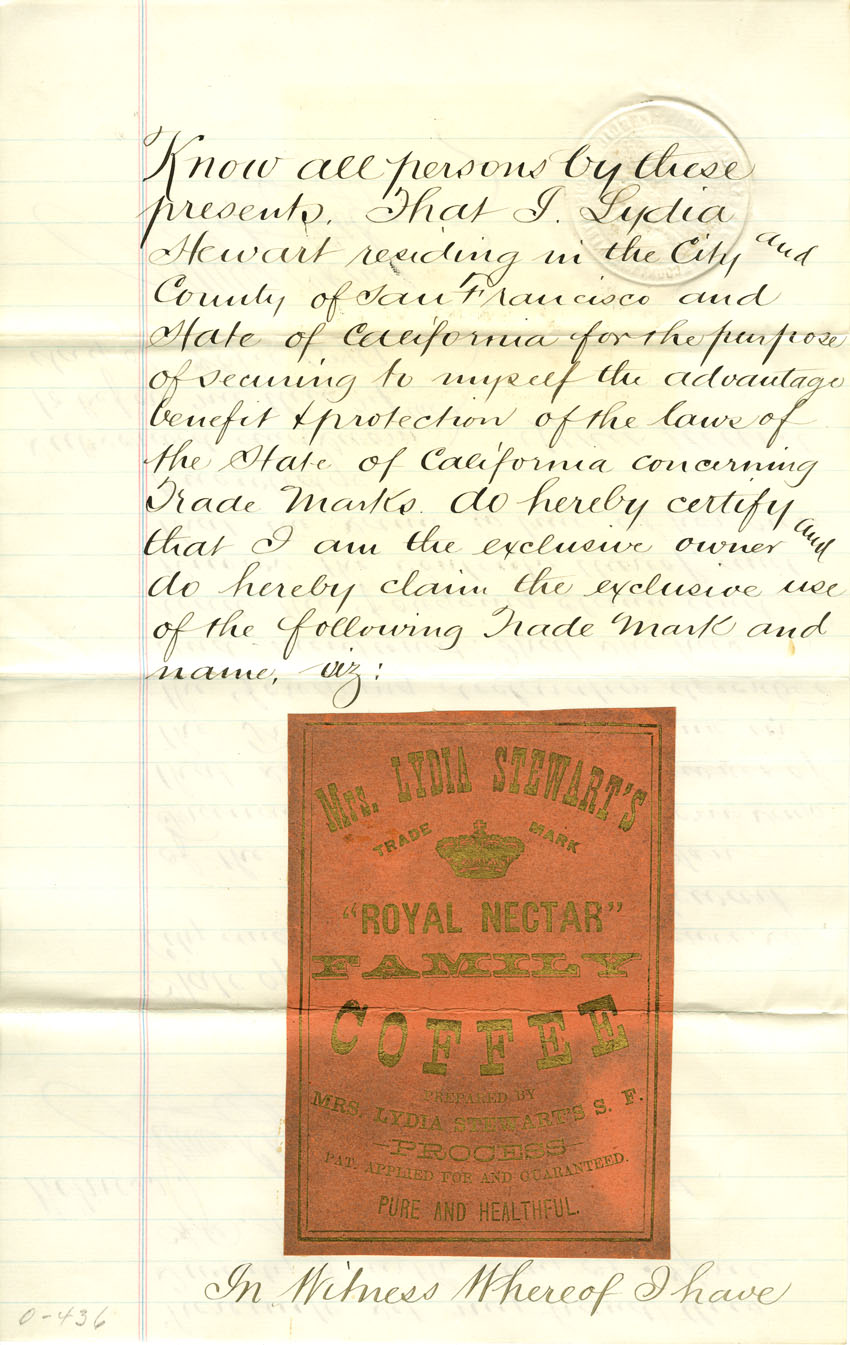 Know all persons by these
presents, That I, Lydia
Stewart residing in the City and
County of San Francisco and
State of California for the purpose
of securing to myself the advantage
benefit & protection of the laws of
the State of California concerning
Trade Marks. do hereby certify
that I am the exclusive owner and
do hereby claim the exclusive use
of the following Trade Mark and
name, viz:
Mrs. LYDIA STEWART'S
TRADE MARK
"ROYAL NECTAR"
FAMILY
COFFEE
PREPARED BY
MRS. LYDIA STEWART'S S. F.
PROCESS
PAT. APPLIED FOR AND GUARANTEED.
PURE AND HEALTHFUL.
In Witness Whereof I have
0-436